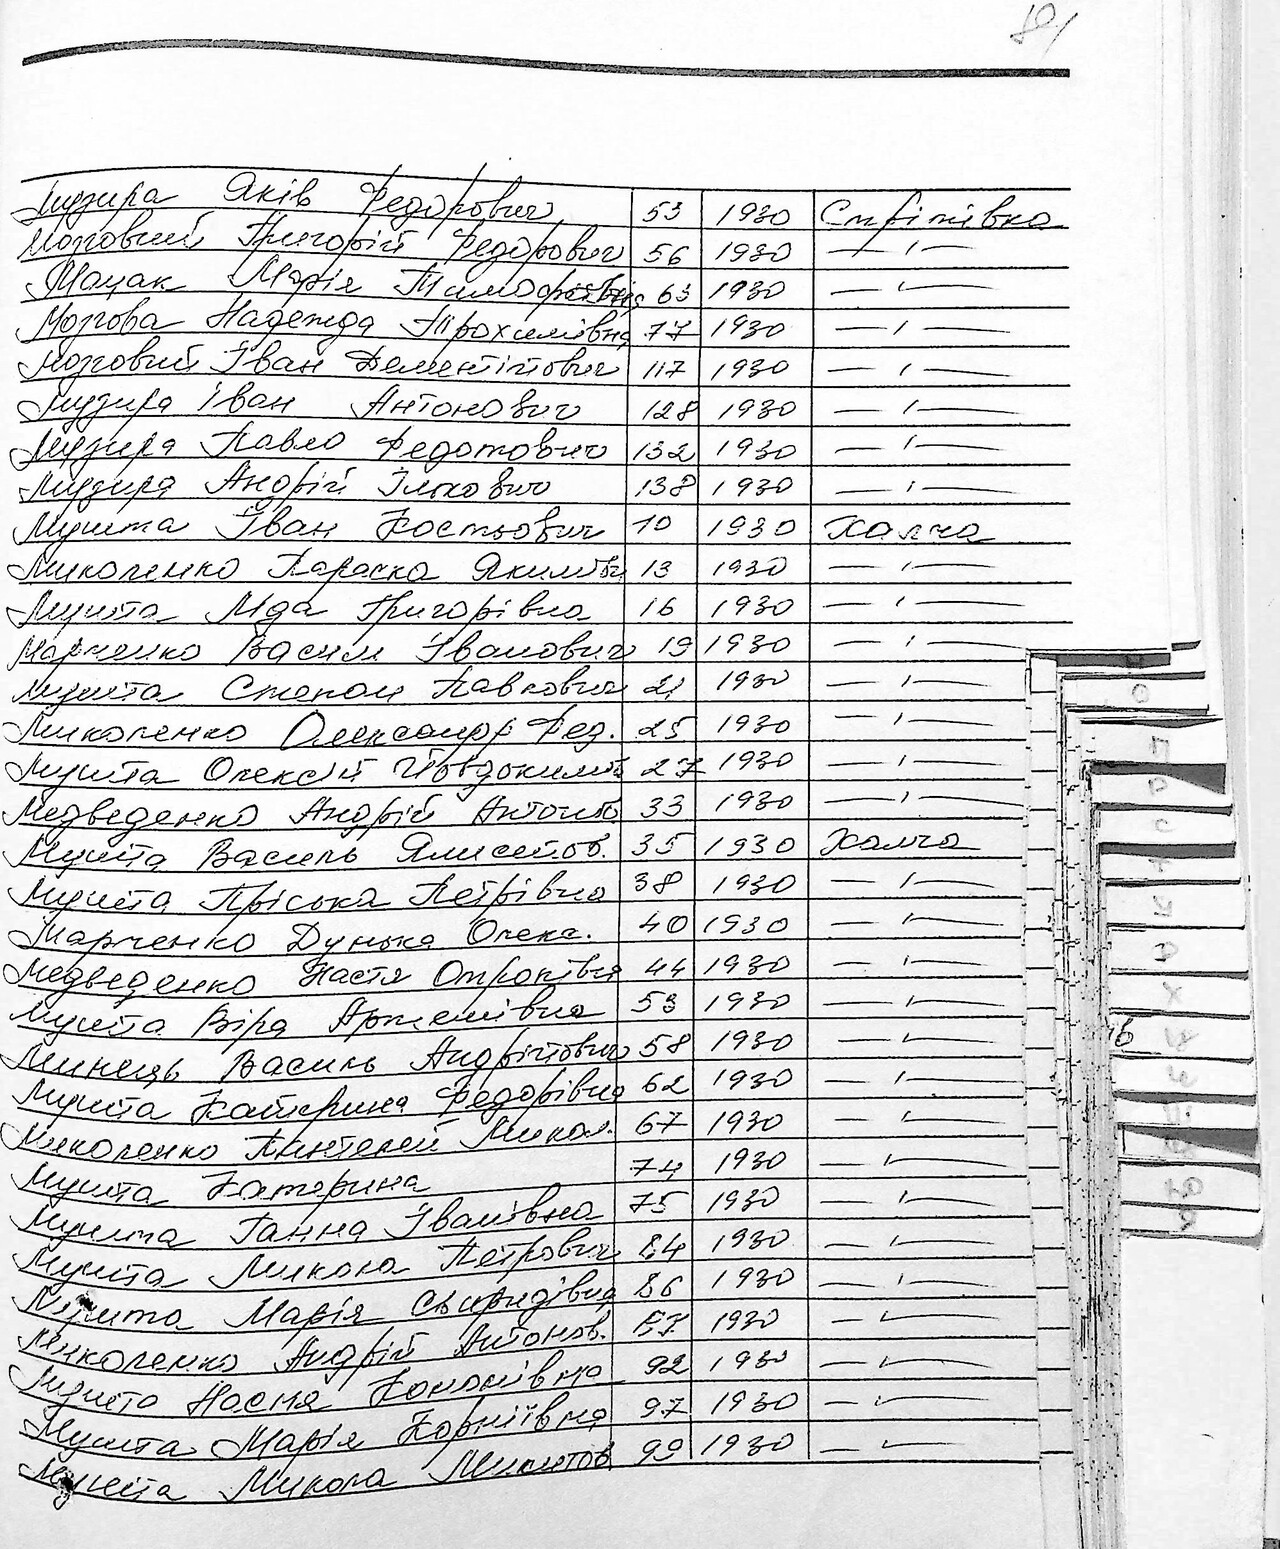 Музира Яків Федорович 53 1930 Стрітівка
Мозговий Григорій Федорович 56 1930 — ı —
Мацак Марія Тимофіївна 63 1930 — ı —
Мозгова Надежда Трохимівна 77 1930 — ı —
Мозговий Іван Дементійович 117 1930 — ı —
Музира Іван Антонович 128 1930 — ı —
Музира Павло Федотович 132 1930 — ı —
Музира Андрій Ількович 138 1930 — ı —
Мушта Іван Костьович 10 1930 Халча
Миколенко Параска Якимівн 13 1930 — ı —
Мушта Григорівна 16 1930 — ı —
Марченко Васил Іванович 19 1930 — ı —
Мушта Степан Павлович 21 1930 — ı —
Миколенко Олександр Фед. 25 1930 — ı —
Мушта Олексій Йовдокимов 27 1930 — ı —
Медведенко Андрій Антонов 33 1930 — ı —
Мушта Василь 35 1930 Халча
Мушта Пріська Петрівна 38 1930 — ı —
Марченко Дунька Олекс. 40 1930 — ı —
Медведенко Настя 44 1930 — ı —
Мушта Віра Артемівна 53 1930 — ı —
Минець Василь Андрійович 58 1930 — ı —
Мушта Катерина Федорівна 62 1930 — ı —
Миколенко Пантелей Микол. 67 1930 — ı —
Мушта Катерина 74 1930 — ı —
Мушта Ганна Іванівна 75 1930 — ı —
Мушта Микола Петрович 84 1930 — ı —
Мушта Марія Свиридівна 86 1930 — ı —
Миколенко Андрій Антонов. 87 1930 — ı —
Мушта Настя Кононівна 92 1930 — ı —
Мушта Марія Корніївна 97 1930 — ı —
Мушта Микола Микитов 99 1930 — ı —